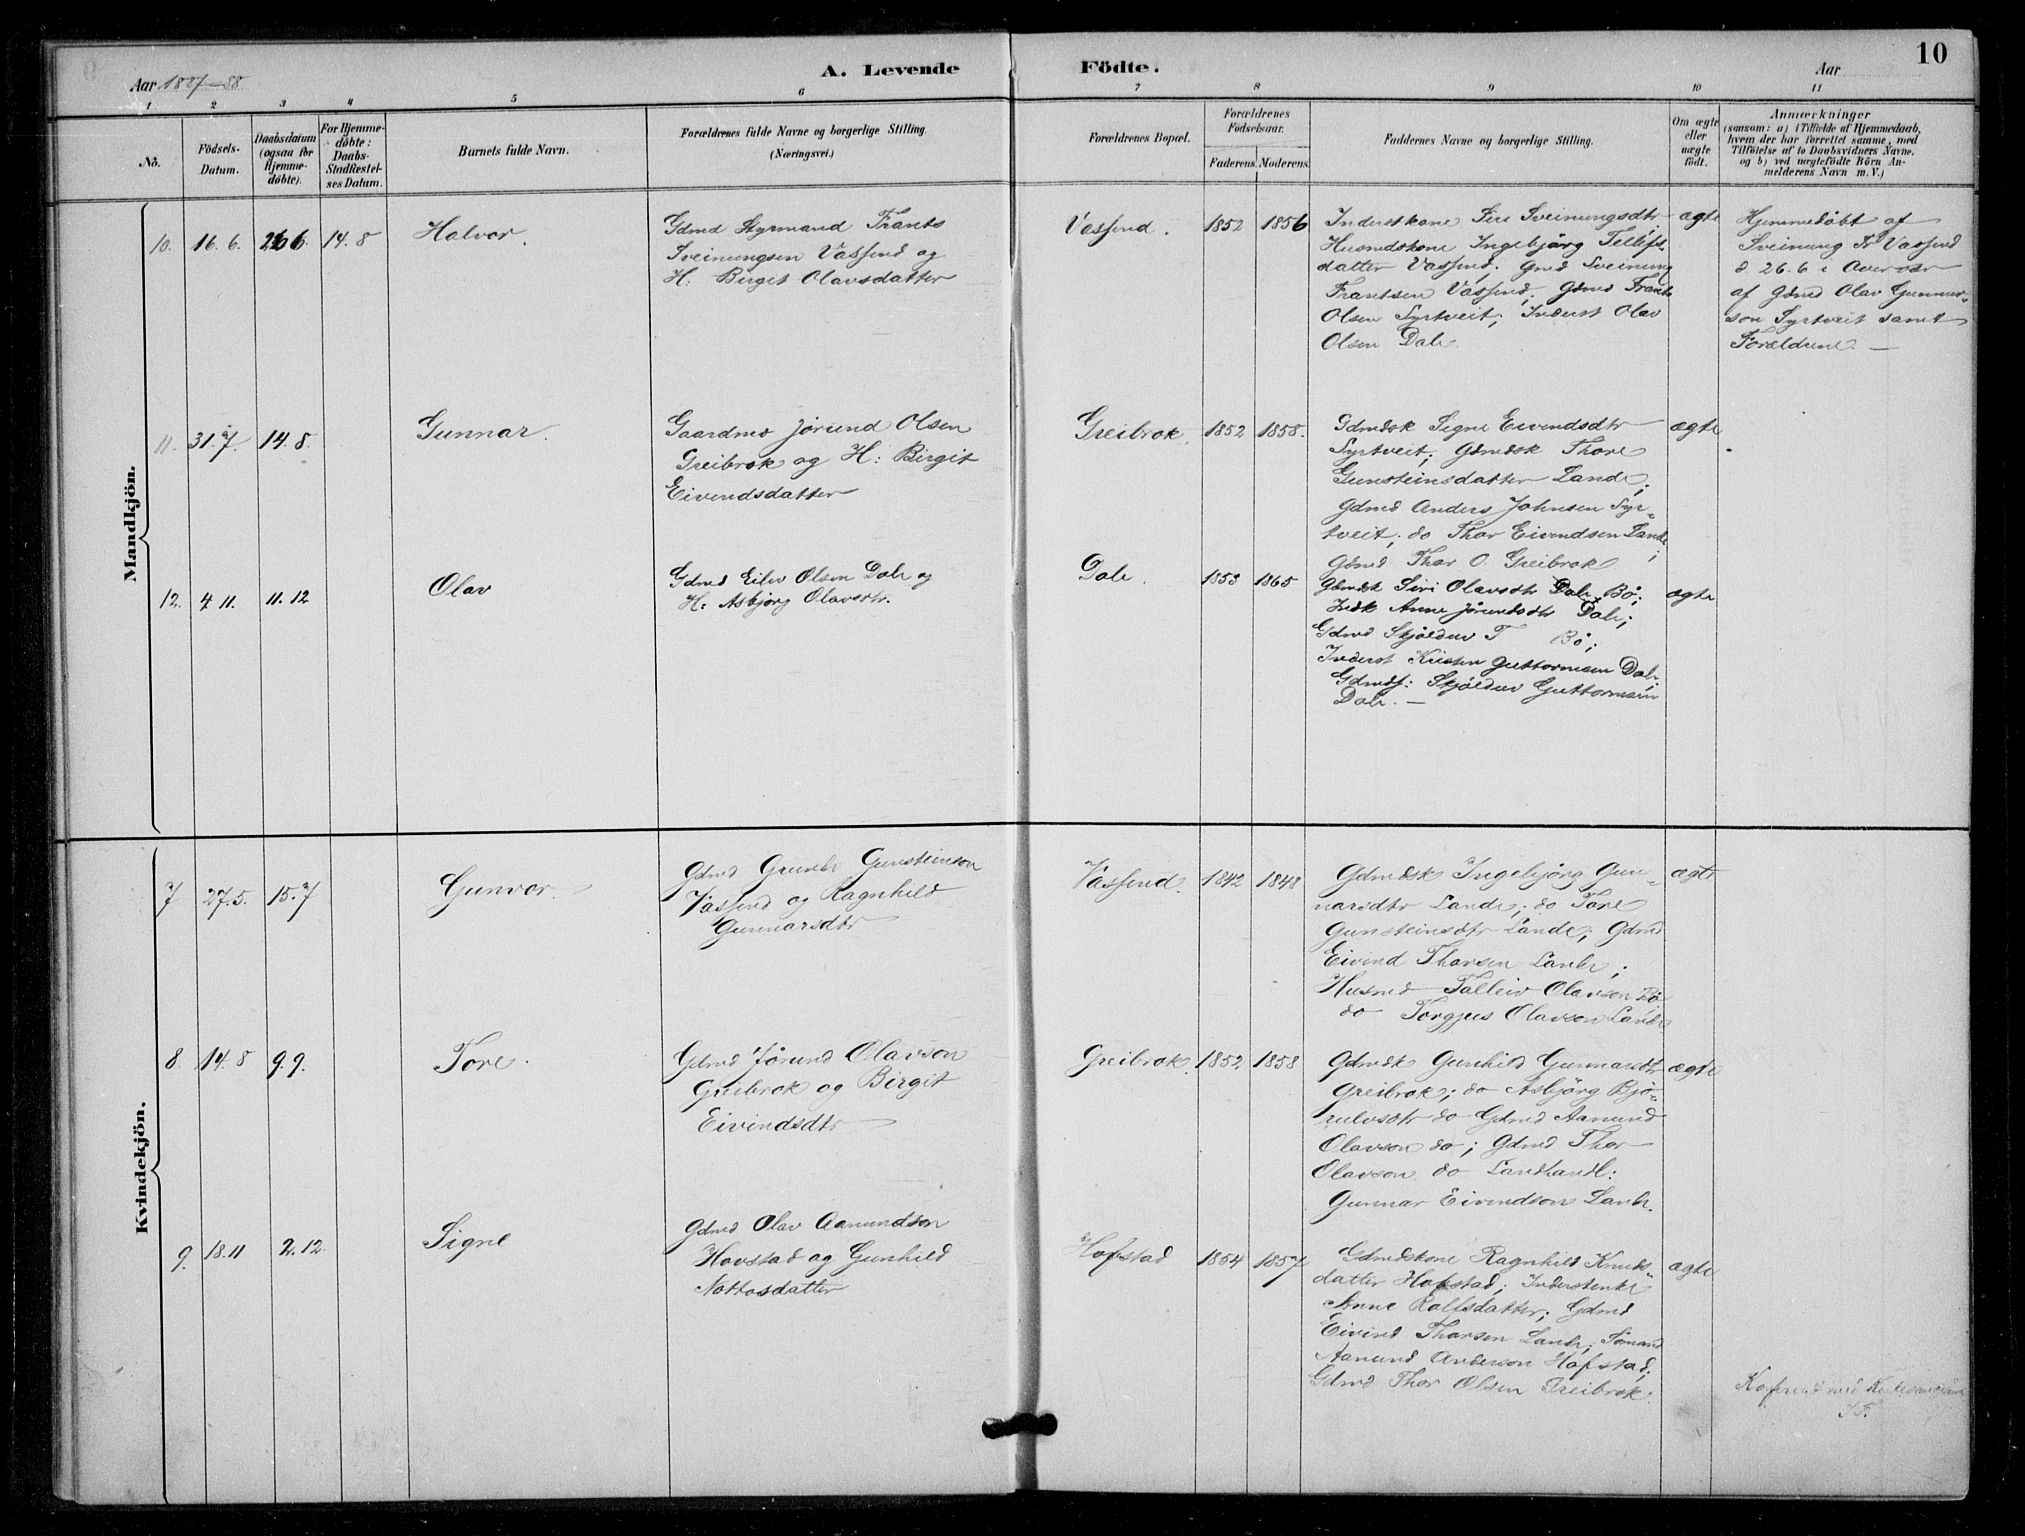 10
Aar 1887-88
A. Levende
Födte.
Aar
1 2 3 4 5 6 7 8 9 10 11
No.
Födsels-
Datum.
Daabsdatum
(ogsaa for
Hjemme-
döbte).
For Hjemme-
döbte:
Daabs-
Stadfæstel-
ses Datum.
Barnets fulde Navn.
Forældrenes fulde Navne og borgerlige Stilling.
(Næringsvei.)
Forældrenes Bopæl.
Forældrenes
Födselsaar.
Faderens. Moderens.
Faddernes Navne og borgerlige Stilling.
Om ægte
eller
uægte
födt.
Anmærkninger
(saasom: a) i Tilfælde af Hjemmedaab,
hvem der har forrettet samme, med
Tilföielse af to Daabsvidners Navne,
og b) ved uægtefödte Börn An-
melderens Navn m. V.)
Mandkjön.
10. 16.6. 26.6. 14.8 Halvor.
Gdmd Styrmand Frants
Sveinungsen Vassend og
H: Birgit Olavsdatter
Vassend. 1852 1856
Inderstkone Siri Sveinungsdtr
Husmdskone Ingebjörg Tellefs-
datter Vassend. Gmd Sveinung
Frantsen Vassend; Gdmd Frants
Olsen Syrtveit; Inderst Olav
Olsen Dale.
ægte
Hjemmedöbt af
Sveinung Fr Vassend
d. 26.6 i Overvær
af Gdmd Olav Gunnar-
son Syrtveit samt
Forældrene. —
11. 31.7 14.8. Gunnar.
Gaardmd Jörund Olsen
Greibrok og H: Birgit
Eivendsdatter
Greibrok. 1852 1858.
Gdmdsk Signe Eivendsdtr
Syrtveit; Gdmdsk Thore
Gunsteinsdatter Lande;
Gdmd Anders Johnsen Syr-
tveit; do Thor Eivendsen Lande;
Gdmd Thor O. Greibrok
ægte
12. 4.11. 11.12 Olav
Gdmd Eilev Olsen Dale og
H: Asbjörg Olavsdtr.
Dale. 1853 1865
Gdmdsk Siri Olavsdtr Dale, Bö;
Indk Anne Jörundsdtr Dale;
Gdmd Skjöldulv T Bö;
Inderst Kristen Guttormsen Dale;
Gdmds: Skjöldulv Guttormsen
Dale. —
ægte
Kvindekjön.
7 27.5. 15.7 Gunvor.
Gdmd Gunstein
Vassend og Ragnhild
Gunnarsdtr
Vassend. 1842 1848
Gdmdsk Ingebjörg Gun-
narsdtr Lande; do Tore
Gunsteinsdtr Lande; Gdmd
Eivind Thorsen Lande;
Husmd Talleiv Olavson Bö
do Torgjus Olavson Lande
ægte
8. 14.8 9.9. Tore.
Gdmd Jörund Olavson
Greibrok og Birgit
Eivindsdtr
Greibrok. 1852 1858
Gdmdsk Gunhild Gunnarsdtr
Greibrok; do Asbjörg Bjö-
rulvsdtr do Gdmd Aanund
Olavson do; Gdmd Thor
Olavson do Landhandl:
Gunnar Eivendson Lande.
ægte
9. 18.11 2.12. Signe
Gdmd Olav Aanundson
Hovstad og Gunhild
Nottosdatter
Hofstad 1854 1857
Gdmdskone Ragnhild Knuts-
datter Hofstad; Inderstenke
Anne Rolfsdatter; Gdmd
Eivind Thorsen Lande; Sömand
Aanund Anderson Hofstad;
Gdmd Thor Olsen Greibrok.
ægte